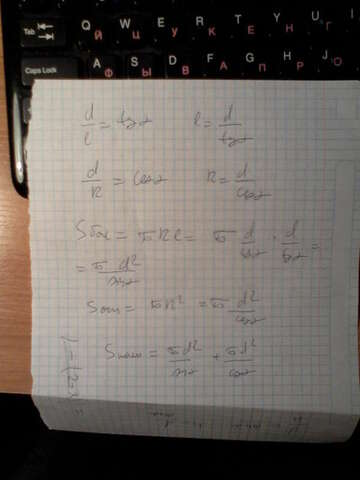 Tab Q Й W Ц E У R К T Е Y Н U Г
Caps Lock A Ф S Ы D В F А G П H Р J О
d/l = tgα l = d/tgα
d/R = cosα R = d/cosα
Sбок = πRl = π d/cosα · d/tgα =
= πd²/sinα
Sосн = πR² = π d²/cosα
Sполн = πd²/sinα + πd²/cosα